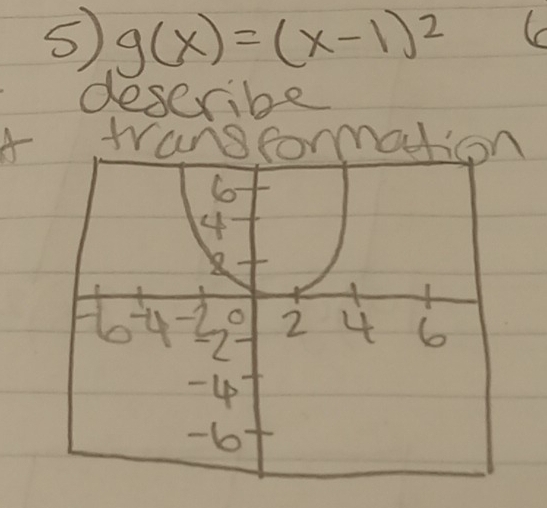 5) g(x) = (x-1)²
describe
transformation
6
4
2
-6 -4 -2 0 2 4 6
-2
-4
-6